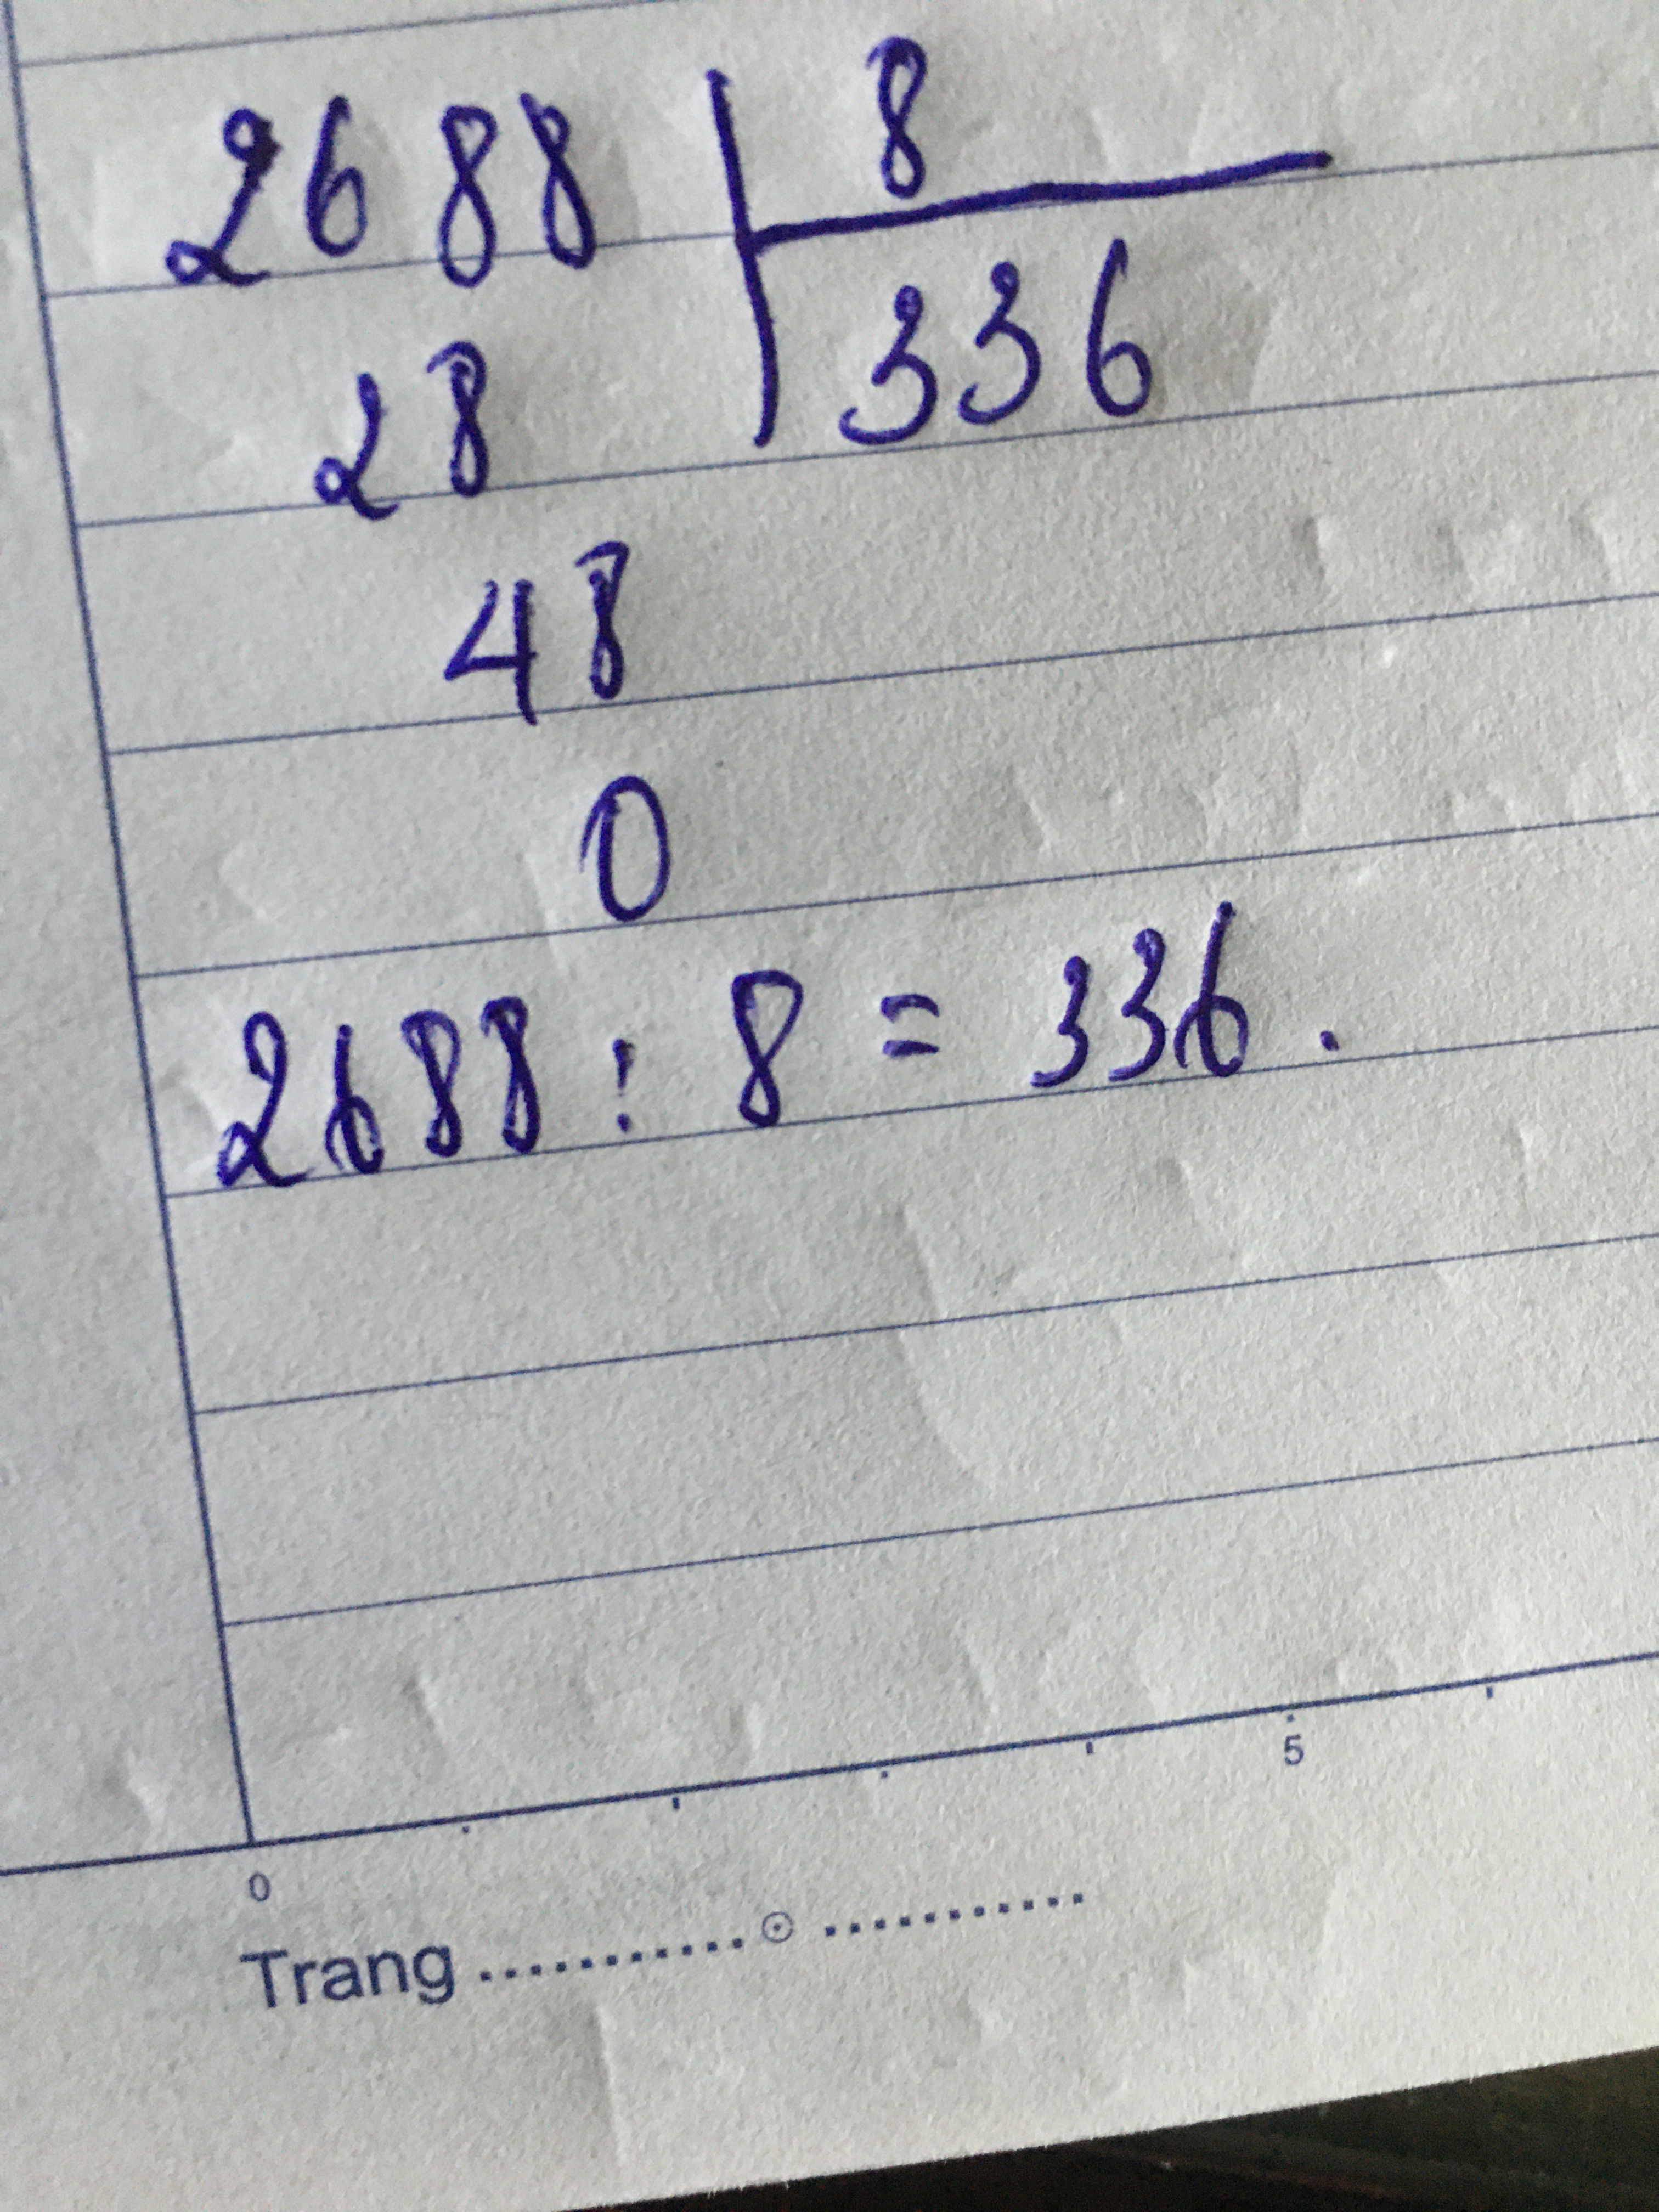 2688 8
28 336
48
0
2688 : 8 = 336 .
5
0
Trang ........... ⊙ ...........